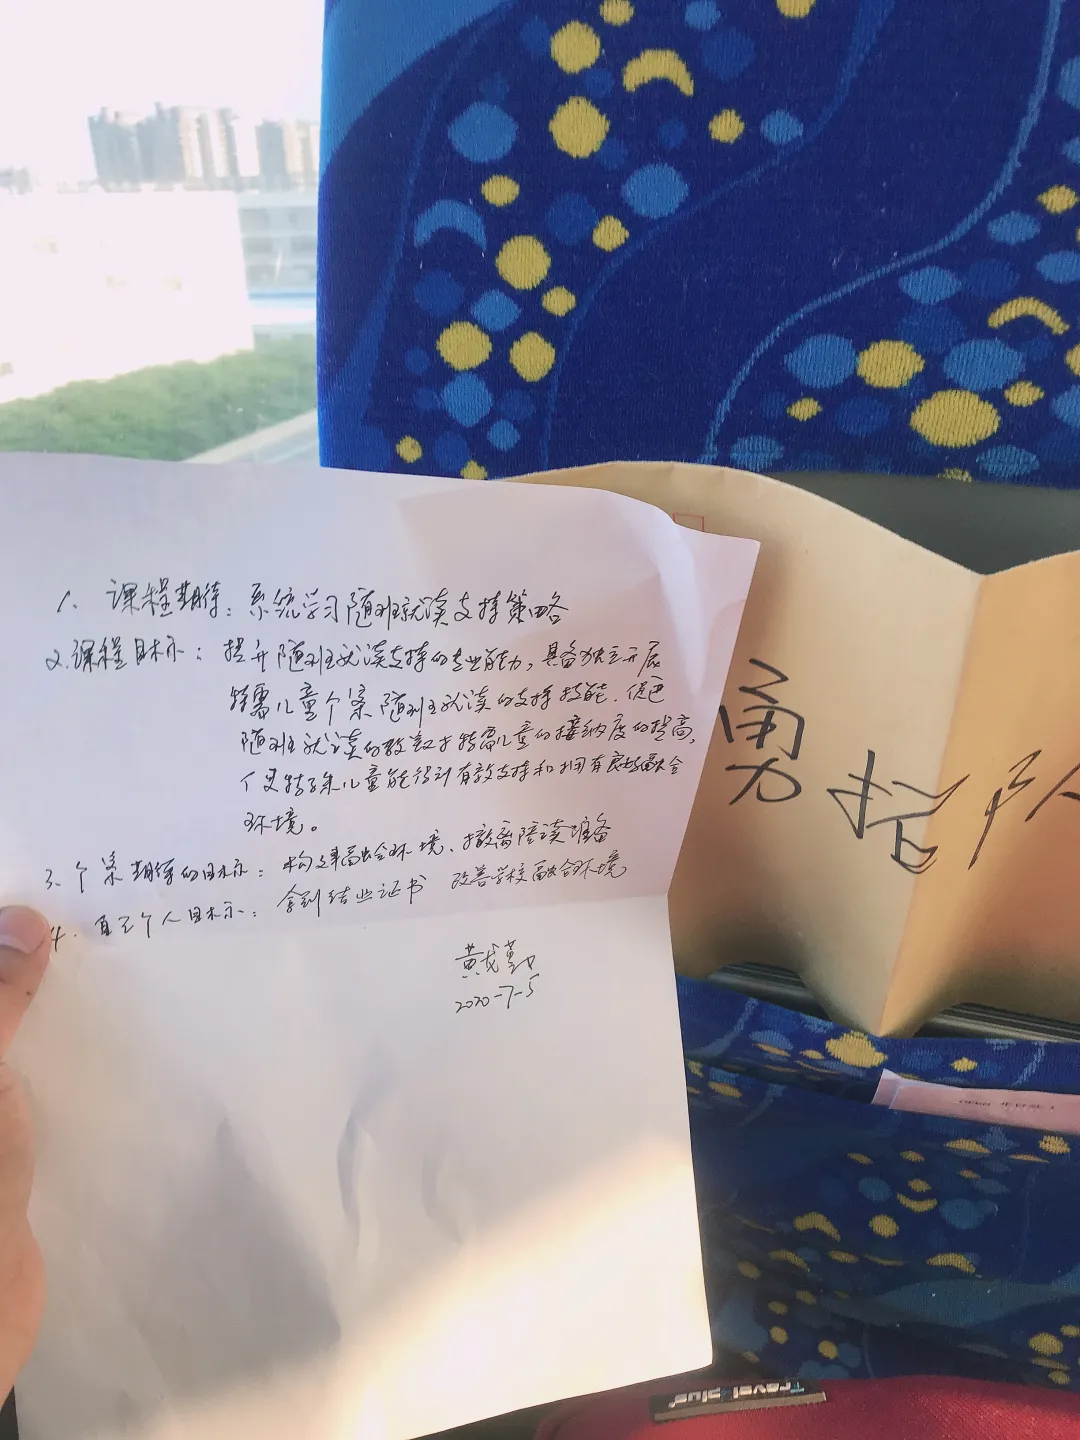 1. 课程期待：系统学习随班就读支持策略
2. 课程目标：提升随班就读支持的专业能力，具备独立开展
特需儿童个案随班就读的支持技能．促进
随班就读的教效才特需儿童的接纳度的提高，
个史特殊儿童能得到有效支持和拥有良好融合
环境。
3. 个案期待的目标：构建融合环境、撤离陪读准备
4. 自己个人目标：拿到结业证书 改善学校融合环境
黄戈勤
2020-7-5
勇
Travel plus